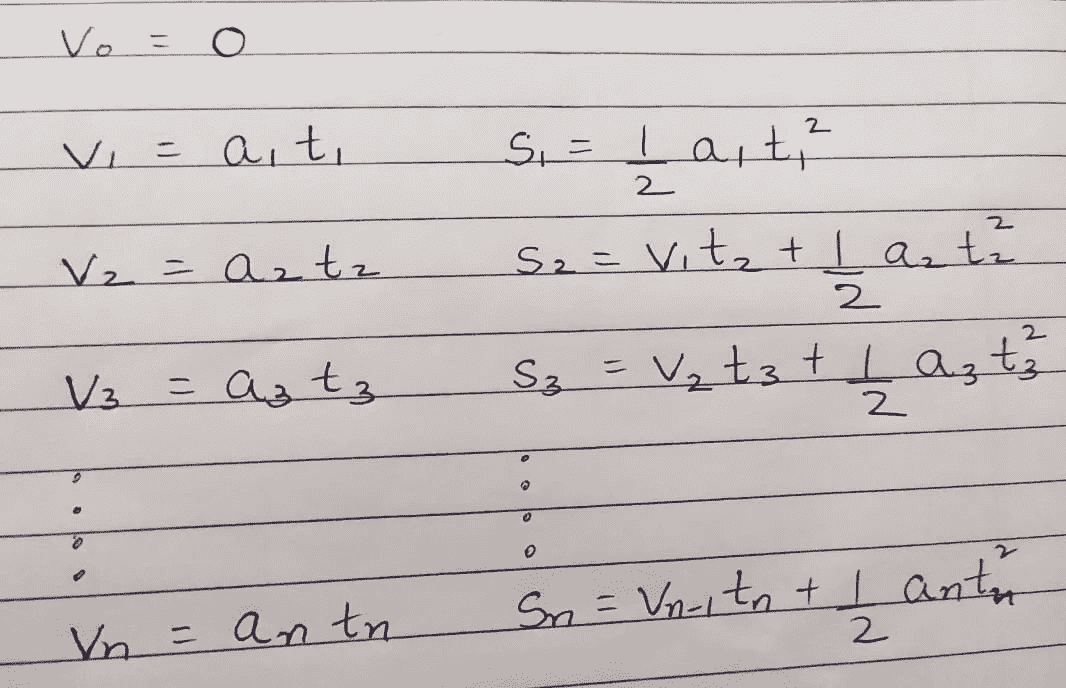 V₀ = 0
V₁ = a₁ t₁ S₁ = 1/2 a₁ t₁²
V₂ = a₂ t₂ S₂ = V₁ t₂ + 1/2 a₂ t₂²
V₃ = a₃ t₃ S₃ = V₂ t₃ + 1/2 a₃ t₃²
Vₙ = aₙ tₙ Sₙ = Vₙ₋₁ tₙ + 1/2 aₙ tₙ²